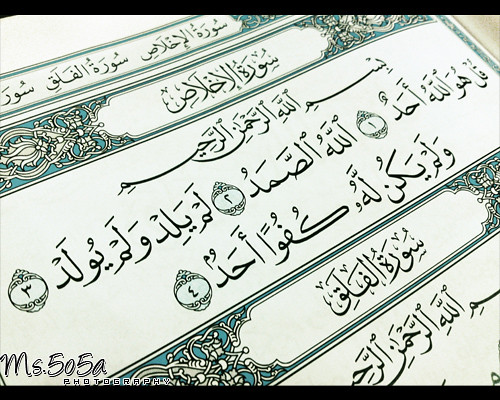 سورة الإخلاص سورة الفلق سور
سُورَةُ الإِخْلَاصِ
بِسْمِ اللَّهِ الرَّحْمَٰنِ الرَّحِيمِ
قُلْ هُوَ اللَّهُ أَحَدٌ ١ اللَّهُ الصَّمَدُ ٢ لَمْ يَلِدْ وَلَمْ يُولَدْ ٣
وَلَمْ يَكُن لَّهُ كُفُوًا أَحَدٌ ٤
سُورَةُ الفَلَقِ
اللَّهِ الرَّحْمَٰنِ الرَّحِيمِ
Ms.5o5a
PHOTOGRAPHY